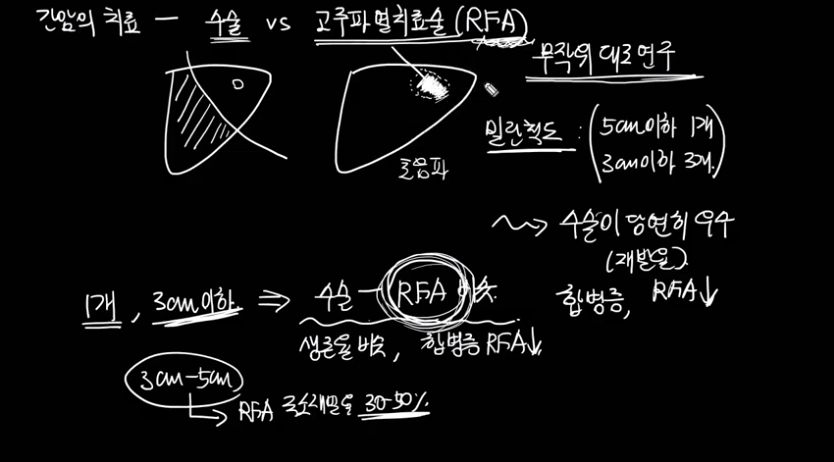 간암의 치료 — 수술 vs 고주파열치료술 (RFA)
무작위 대조연구
밀란척도 : (5cm이하 1개
3cm이하 3개)
초음파
⇝ 수술이 당연히 우수
(재발율)
합병증, RFA↓
1개, 3cm이하. ⇒ 수술 — RFA 비슷
생존율 비슷, 합병증 RFA↓
3cm-5cm
RFA 국소재발율 30-50%.